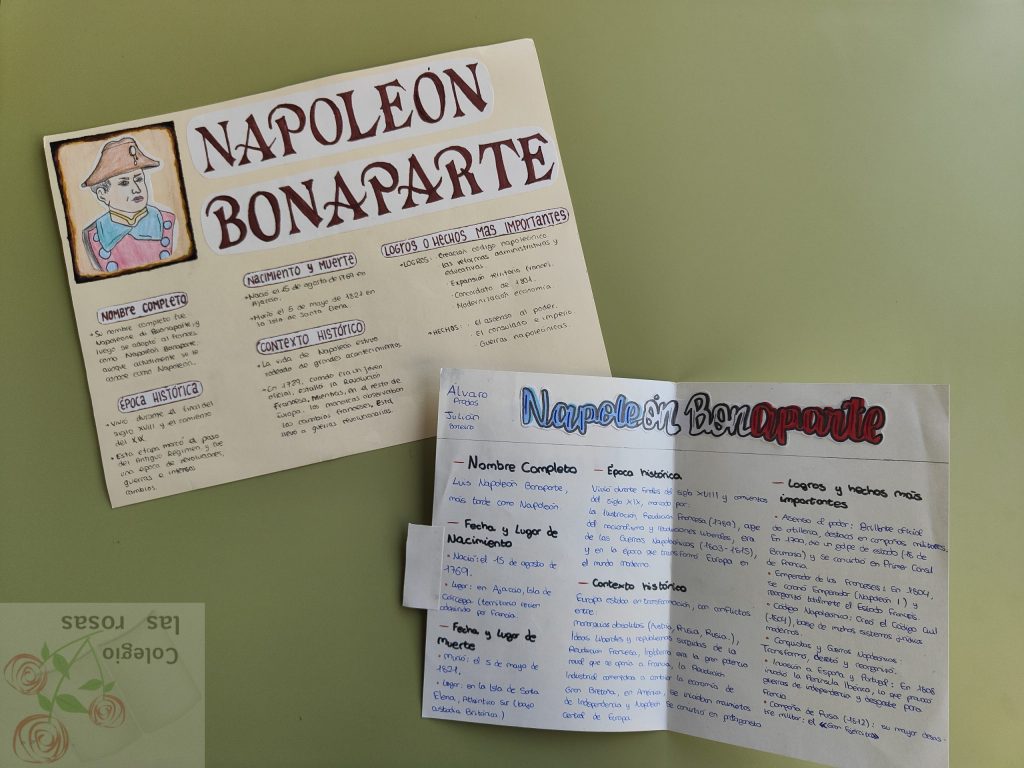 NAPOLEÓN
BONAPARTE
NOMBRE COMPLETO
• Su nombre completo fue
Napoleone de Buonaparte, y
luego se adoptó al francés
como Napoleón Bonaparte.
aunque actualmente se le
conoce como Napoleón.
ÉPOCA HISTÓRICA
• Vivió durante el final del
siglo XVIII y el comienzo
del XIX
• Esta etapa marcó el paso
del Antiguo Régimen y fue
una época de revoluciones,
guerras e intensos
cambios.
NACIMIENTO Y MUERTE
• Nació el 15 de agosto de 1769 en
Ajaccio.
• Murió el 5 de mayo de 1821 en
la isla de Santa Elena
CONTEXTO HISTÓRICO
• La vida de Napoleón estuvo
rodeada de grandes acontecimientos.
• En 1789, cuando era un joven
oficial, estalla la Revolución
Francesa. Mientras, en el resto de
Europa, los monarcas observaban
los cambios franceses. Esto
llevó a guerras revolucionarias.
LOGROS O HECHOS MAS IMPORTANTES
• LOGROS: · Creación código napoleónico
las reformas administrativas y
educativas
· Expansión territorio francés.
· Concordato de 1801
· Modernización económica.
• HECHOS: · el ascenso al poder.
· El consulado e imperio
· Guerras napoleónicas.
Álvaro
Julián
Napoleón Bonaparte
– Nombre Completo
Luis Napoleón Bonaparte,
más tarde como Napoleón
– Fecha y Lugar de
Nacimiento
• Nació: el 15 de agosto de
1769.
• Lugar: en Ajaccio, Isla de
Córcega (territorio recien
adquirido por Francia.
– Fecha y lugar de
Muerte
• Murió: el 5 de mayo de
1821.
• Lugar: en la Isla de Santa
Elena, Atlántico sur (bajo
custodia Británica)
– Época histórica
Vivió durante finales del siglo XVIII y comienzos
del siglo XIX, marcado por:
la Ilustración, Revolución Francesa (1789), auge
del nacionalismo y revoluciones liberales, era
de las Guerras Napoleónicas (1803-1815),
y en la época que transformó Europa en
el mundo moderno.
– Contexto histórico
Europa estaba en transformación, con conflictos
entre:
monarquías absolutas (Austria, Prusia, Rusia..),
Ideas liberales y republicanas surgidas de la
Revolución Francesa, Inglaterra era la gran potencia
naval que se oponía a Francia, la Revolución
Industrial comenzaba a cambiar la economía de
Gran Bretaña, en América, se iniciaban movimientos
de Independencia y Napoleón se convirtió en protagonista
Central de Europa
– Logros y hechos más
importantes
• Ascenso al poder: Brillante oficial
de artillería, destacó en campañas militares.
En 1799, dio un golpe de estado (18 de
Brumario) y se convirtió en Primer Cónsul
de Francia.
• Emperador de los Franceses: En 1804,
se coronó Emperador (Napoleón I) y
reorganizó totalmente el Estado Francés.
• Código Napoleónico: Creó el Código Civil
(1804), base de muchos sistemas jurídicos
modernos.
• Conquistas y Guerras Napoleónicas:
Transformó, derrotó y reorganizó.
• Invasión a España y Portugal: En 1808
invadió la Península Ibérica, lo que provocó
guerras de independencia y desgaste para
Francia
• Campaña de Rusia (1812): su mayor desas-
tre militar: el
Colegio
las rosas